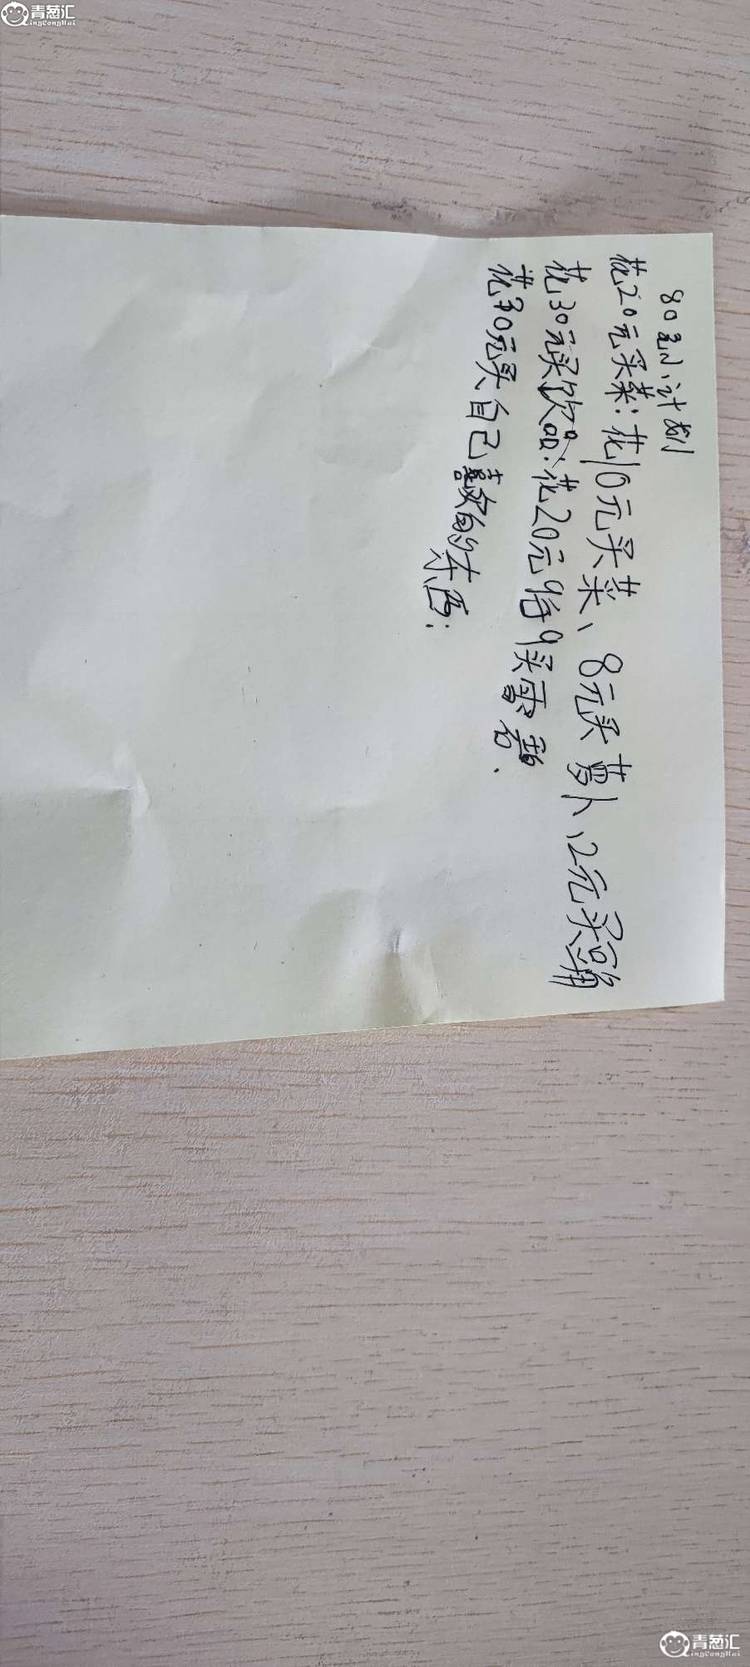 青葱汇
QingCongHui
80 计划
花20元买菜:花10元买菜、8元买萝卜、2元买
花30元买饮品:花20元 买雪碧、
花30元买自己喜欢的东西:
青葱汇
QingCongHui